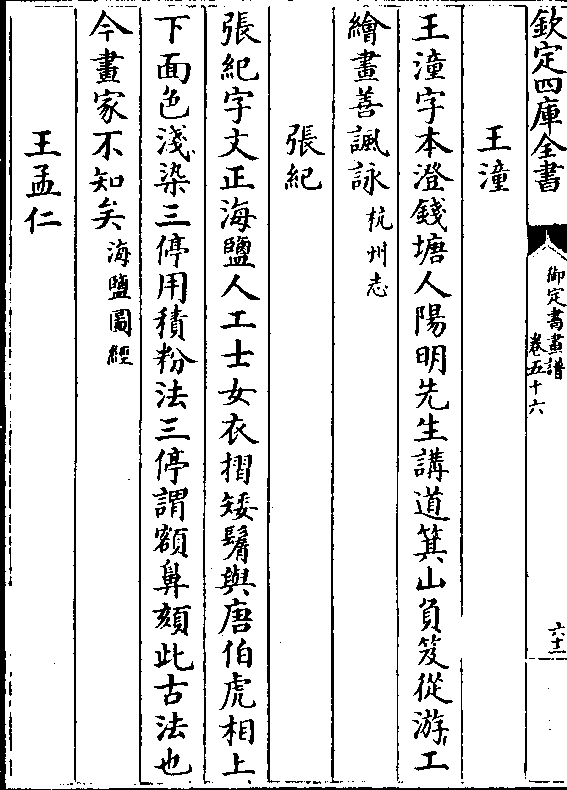 欽定四庫全書
御定書畫譜
卷五十六
六十二
王潼
王潼字本澄錢塘人陽明先生講道箕山負笈從游工
繪畫善諷詠杭州志
張紀
張紀字文正海鹽人工士女衣摺矮鬌與唐伯虎相上
下面色淺染三停用積粉法三停謂額鼻頦此古法也
今畫家不知矣海鹽圖經
王孟仁